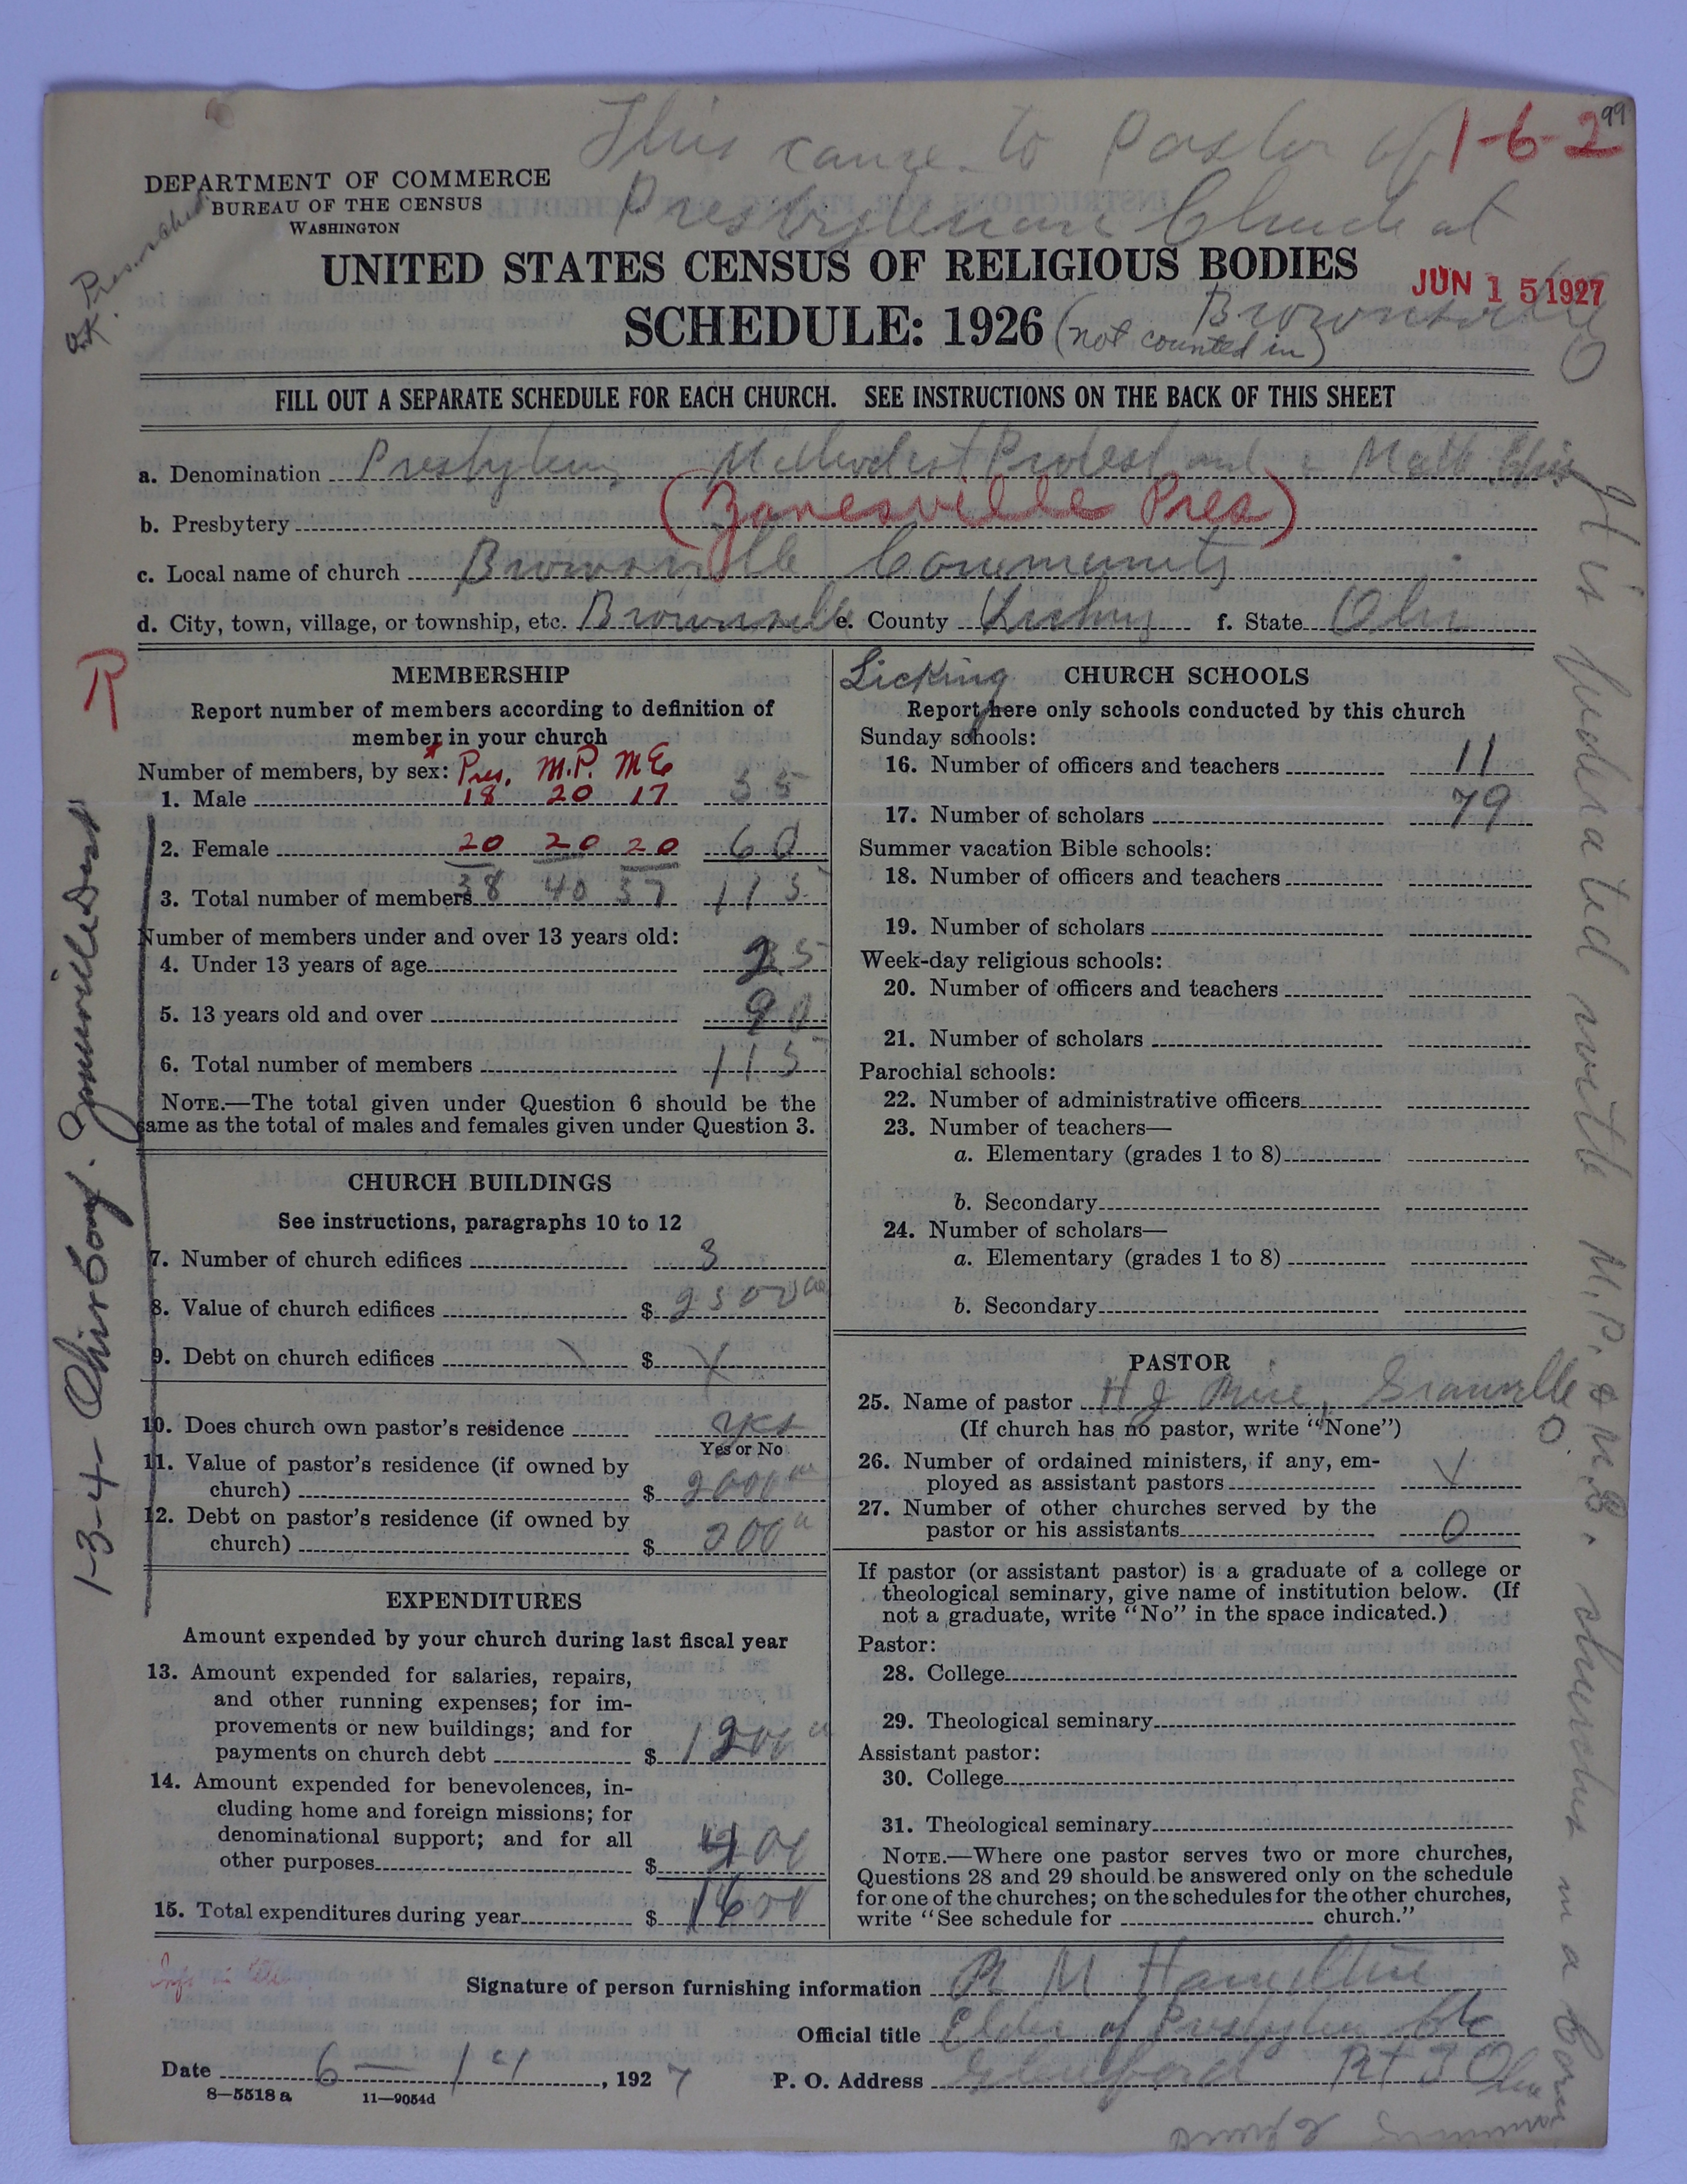 This came to Pastor of
1-6-2 99
Presbyterian Church at
Brownsville O
DEPARTMENT OF COMMERCE
BUREAU OF THE CENSUS
WASHINGTON
UNITED STATES CENSUS OF RELIGIOUS BODIES
JUN 15 1927
SCHEDULE: 1926 (not counted in)
FILL OUT A SEPARATE SCHEDULE FOR EACH CHURCH. SEE INSTRUCTIONS ON THE BACK OF THIS SHEET
a. Denomination Presbyterian Methodist Protest and Meth Epis
b. Presbytery (Zanesville Pres)
c. Local name of church Brownsville Community
d. City, town, village, or township, etc. Brownsville e. County Licking f. State Ohio
Licking
R
MEMBERSHIP
Report number of members according to definition of
member in your church
Number of members, by sex: Pres. M.P. ME
1. Male 18 20 17 55
2. Female 20 20 20 60
3. Total number of members 38 40 37 115
Number of members under and over 13 years old:
4. Under 13 years of age 25
5. 13 years old and over 90
6. Total number of members 115
NOTE.—The total given under Question 6 should be the
same as the total of males and females given under Question 3.
CHURCH BUILDINGS
See instructions, paragraphs 10 to 12
7. Number of church edifices 3
8. Value of church edifices $ 2500 00
9. Debt on church edifices $
10. Does church own pastor's residence yes
Yes or No
11. Value of pastor's residence (if owned by
church) $ 2000 00
12. Debt on pastor's residence (if owned by
church) $ 200
EXPENDITURES
Amount expended by your church during last fiscal year
13. Amount expended for salaries, repairs,
and other running expenses; for im-
provements or new buildings; and for
payments on church debt $ 1200
14. Amount expended for benevolences, in-
cluding home and foreign missions; for
denominational support; and for all
other purposes $ 400
15. Total expenditures during year $ 1600
CHURCH SCHOOLS
Report here only schools conducted by this church
Sunday schools:
16. Number of officers and teachers 11
17. Number of scholars 79
Summer vacation Bible schools:
18. Number of officers and teachers
19. Number of scholars
Week-day religious schools:
20. Number of officers and teachers
21. Number of scholars
Parochial schools:
22. Number of administrative officers
23. Number of teachers—
a. Elementary (grades 1 to 8)
b. Secondary
24. Number of scholars—
a. Elementary (grades 1 to 8)
b. Secondary
PASTOR
25. Name of pastor H J Granville
O.
(If church has no pastor, write "None")
26. Number of ordained ministers, if any, em-
ployed as assistant pastors
27. Number of other churches served by the
pastor or his assistants 0
If pastor (or assistant pastor) is a graduate of a college or
theological seminary, give name of institution below. (If
not a graduate, write "No" in the space indicated.)
Pastor:
28. College
29. Theological seminary
Assistant pastor:
30. College
31. Theological seminary
NOTE.—Where one pastor serves two or more churches,
Questions 28 and 29 should be answered only on the schedule
for one of the churches; on the schedules for the other churches,
write "See schedule for church."
Signature of person furnishing information M Hamilton
Official title Elder of Presbyterian Ch
Date 6—14, 1927 P. O. Address Glenford Rt 3 Ohio
8—5518 a 11—9054d
1-3-4- Ohio Cong. Zanesville Dist
It is federated with M.P. & M.E. churches in a